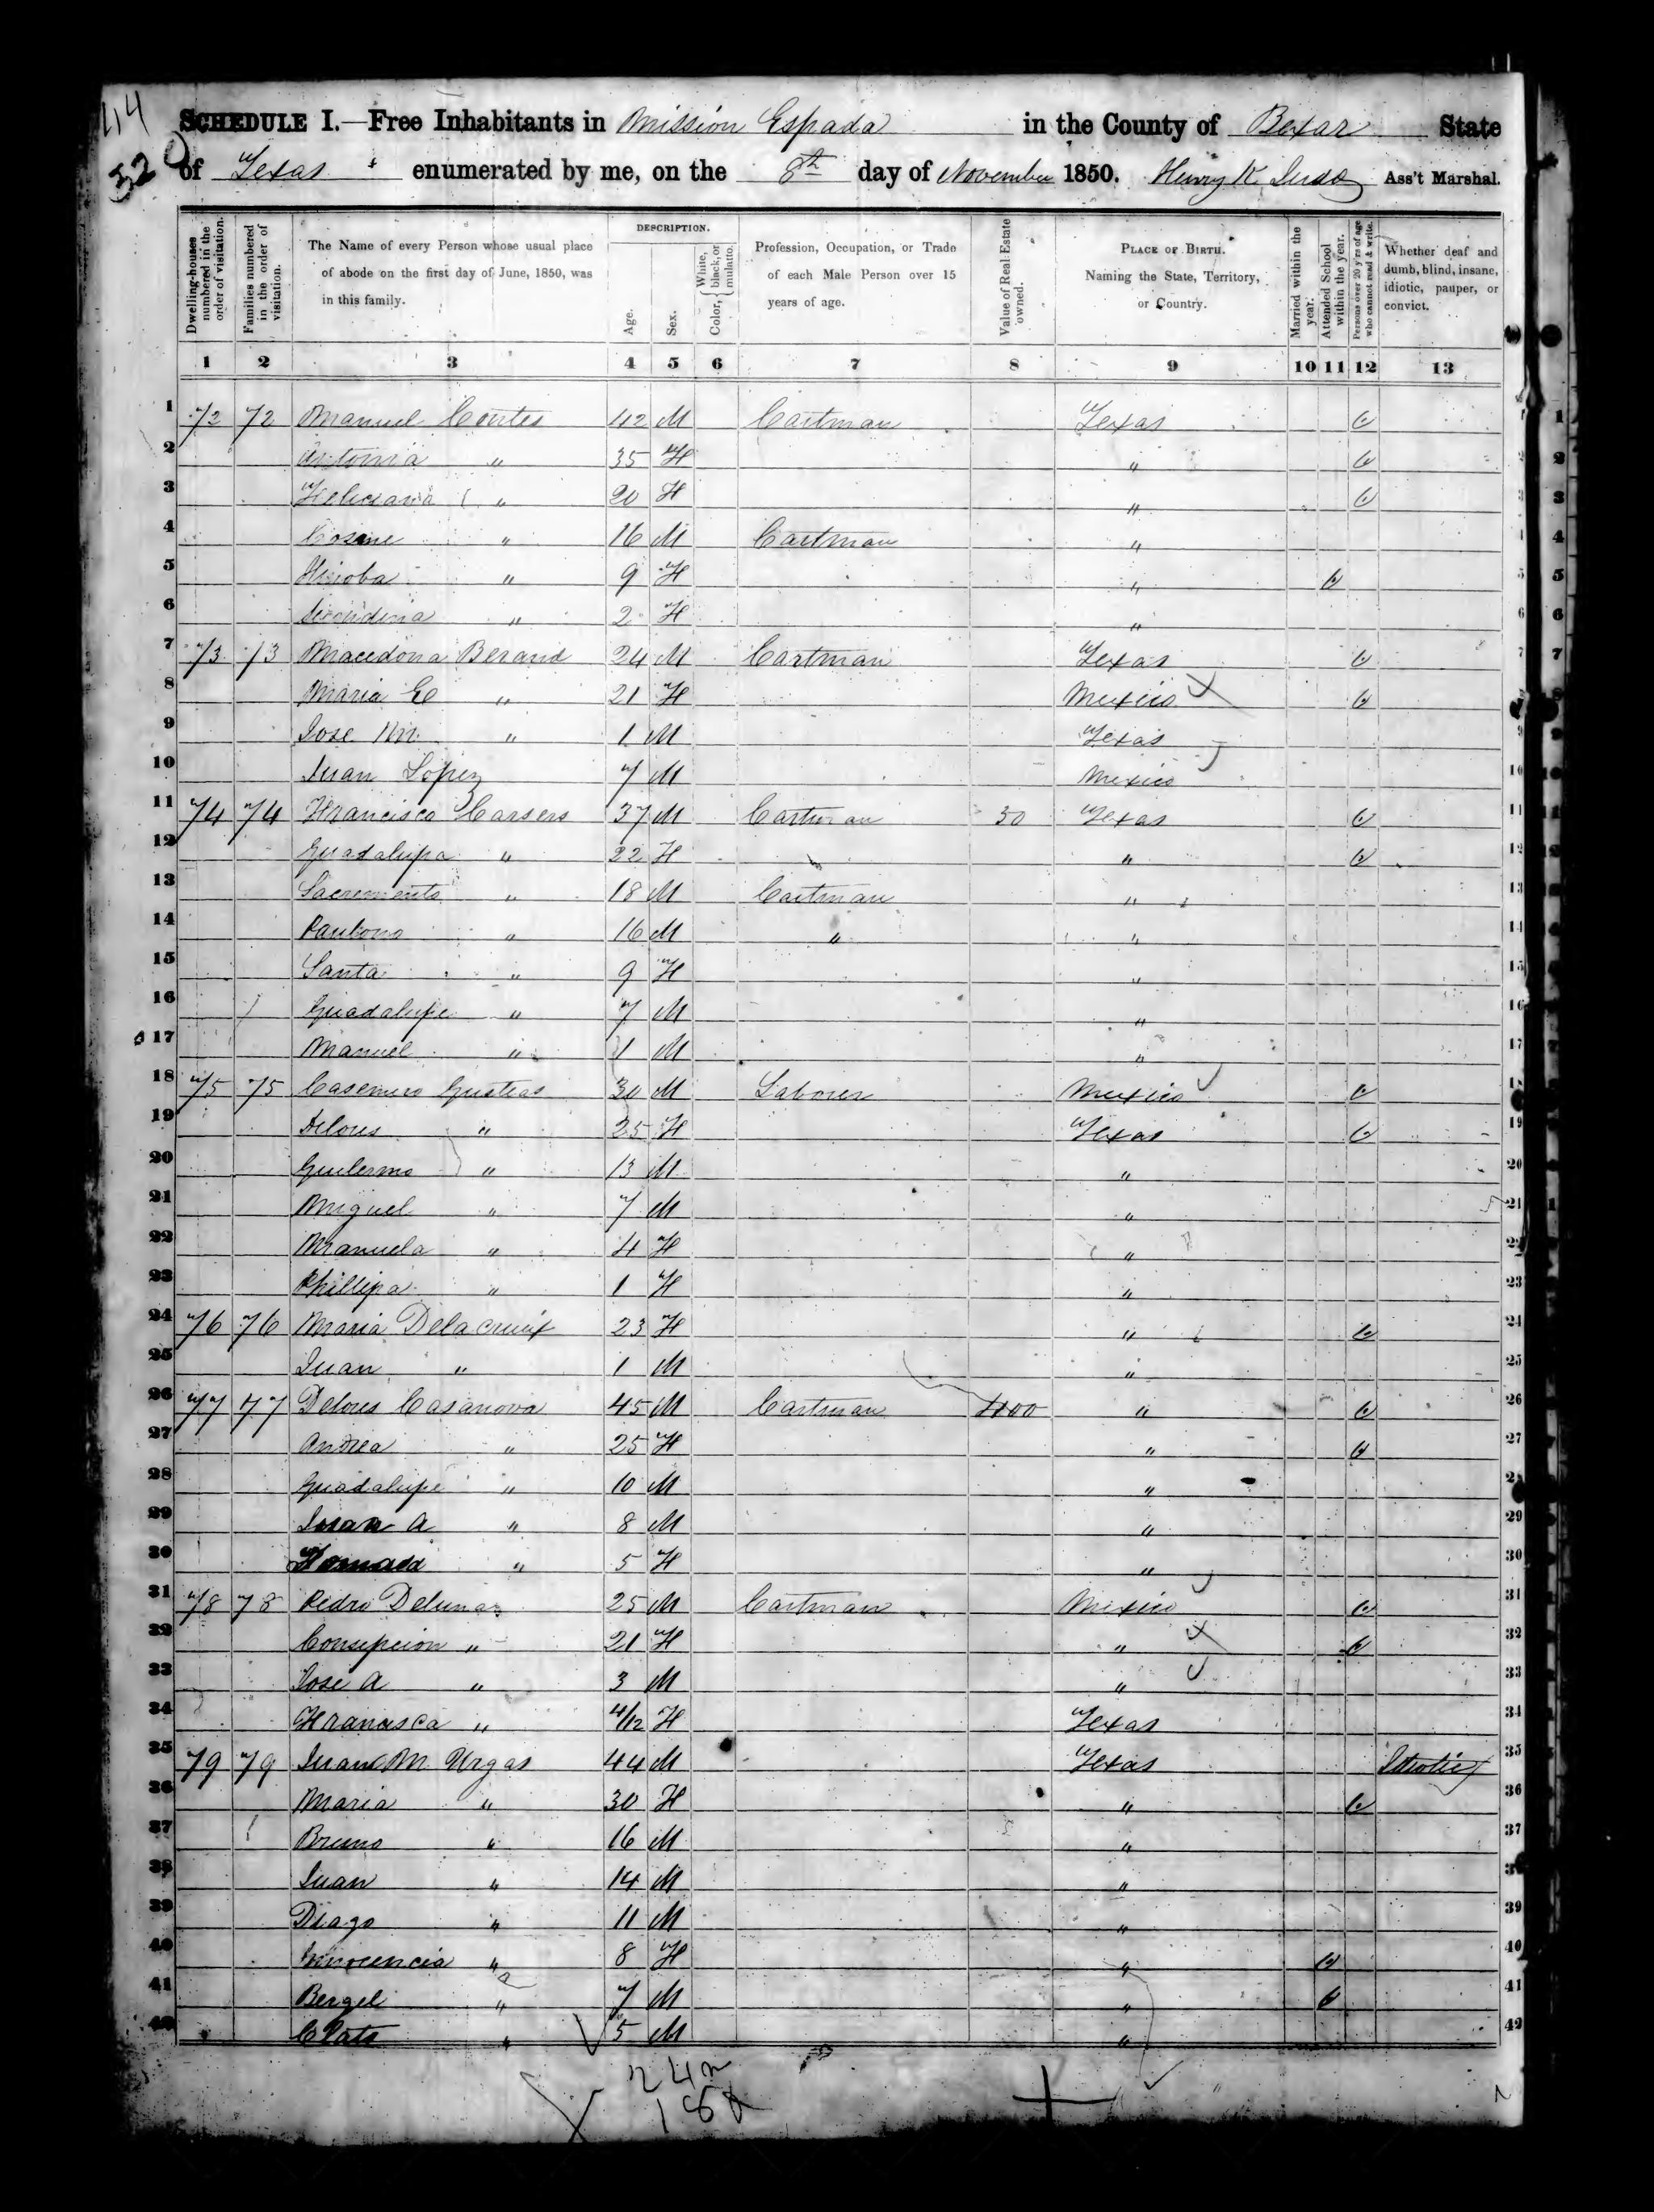 414
320
SCHEDULE I.—Free Inhabitants in Mission Espada in the County of Bexar State
of Texas enumerated by me, on the 8th day of November 1850. Henry K. Ass't Marshal.
Dwelling-houses numbered in the order of visitation.
Families numbered in the order of visitation.
The Name of every Person whose usual place of abode on the first day of June, 1850, was in this family.
DESCRIPTION.
Age.
Sex.
Color, { White, black, or mulatto.
Profession, Occupation, or Trade of each Male Person over 15 years of age.
Value of Real Estate owned.
PLACE OF BIRTH. Naming the State, Territory, or Country.
Married within the year.
Attended School within the year.
Persons over 20 y'rs of age who cannot read & write.
Whether deaf and dumb, blind, insane, idiotic, pauper, or convict.
1 2 3 4 5 6 7 8 9 10 11 12 13
1 72 72 Manuel Cortes 42 M Cartman Texas 1
2 Antonia " 35 F " 2
3 " 20 F " 3
4 Cosme " 16 M Cartman " 4
5 " 9 F " 5
6 Secundina " 2 F " 6
7 73 73 Macedona 24 M Cartman Texas 7
8 Maria " 21 F Mexico 8
9 Jose " 1 M Texas 9
10 Juan Lopez 7 M Mexico 10
11 74 74 Francisco 37 M Cartman 50 Texas 11
12 Guadalupa " 22 F " 12
13 Sacremento " 18 M Cartman " 13
14 " 16 M " " 14
15 Santa " 9 F " 15
16 Guadalupe " 7 M " 16
17 Manuel " 1 M " 17
18 75 75 Casemiro 30 M Laborer Mexico 18
19 Delores " 25 F Texas 19
20 Guilermo " 13 M " 20
21 Miguel " 7 M " 21
22 Manuela " 4 F " 22
23 Phillipa " 1 F " 23
24 76 76 Maria Delacruix 23 F " 24
25 Juan " 1 M " 25
26 77 77 Delores Casanova 45 M Cartman " 26
27 Andrea " 25 F " 27
28 Guadalupe " 10 M " 28
29 Juan A " 8 M " 29
30 Tomasa " 5 F " 30
31 78 78 Pedro Delunas 25 M Cartman Mexico 31
32 Consepcion " 21 F " 32
33 Jose A " 3 M " 33
34 Francisca " 4/12 F Texas 34
35 79 79 Juan M. Urgas 44 M Texas Idiotic 35
36 Maria " 30 F " 36
37 Bruno " 16 M " 37
38 Juan " 14 M " 38
39 Diago " 11 M " 39
40 Innocencia " 8 F " 40
41 Bergel " 7 M " 41
42 " 5 M " 42